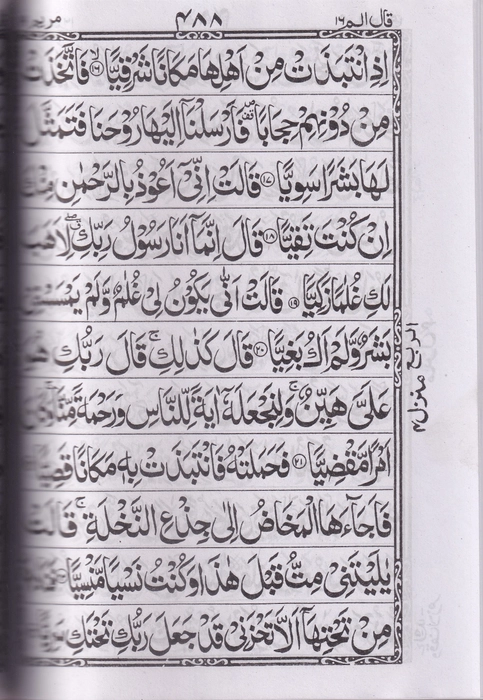 قال الم ۱۶ ۴۸۸ مریم
اِذِ انْتَبَذَتْ مِنْ اَهْلِهَا مَكَانًا شَرْقِيًّا ۙ‏﴿۱۶﴾ فَاتَّخَذَتْ
مِنْ دُوْنِهِمْ حِجَابًا ۪۟ فَاَرْسَلْنَاۤ اِلَيْهَا رُوْحَنَا فَتَمَثَّلَ
لَهَا بَشَرًا سَوِيًّا ﴿۱۷﴾ قَالَتْ اِنِّيْۤ اَعُوْذُ بِالرَّحْمٰنِ مِنْكَ
اِنْ كُنْتَ تَقِيًّا ﴿۱۸﴾ قَالَ اِنَّمَاۤ اَنَا رَسُوْلُ رَبِّكِ ۖۗ لِاَهَبَ
لَكِ غُلٰمًا زَكِيًّا ﴿۱۹﴾ قَالَتْ اَنّٰى يَكُوْنُ لِيْ غُلٰمٌ وَّلَمْ يَمْسَسْنِيْ
بَشَرٌ وَّلَمْ اَكُ بَغِيًّا ﴿۲۰﴾ قَالَ كَذٰلِكِ ۚ قَالَ رَبُّكِ هُوَ
عَلَيَّ هَيِّنٌ ۚ وَلِنَجْعَلَهٗۤ اٰيَةً لِّلنَّاسِ وَرَحْمَةً مِّنَّا ۚ وَكَانَ
اَمْرًا مَّقْضِيًّا ﴿۲۱﴾ فَحَمَلَتْهُ فَانْتَبَذَتْ بِهٖ مَكَانًا قَصِيًّا
فَاَجَآءَهَا الْمَخَاضُ اِلٰى جِذْعِ النَّخْلَةِ ۚ قَالَتْ
يٰلَيْتَنِيْ مِتُّ قَبْلَ هٰذَا وَكُنْتُ نَسْيًا مَّنْسِيًّا
مِنْ تَحْتِهَاۤ اَلَّا تَحْزَنِيْ قَدْ جَعَلَ رَبُّكِ تَحْتَكِ
الربع
منزل ۴